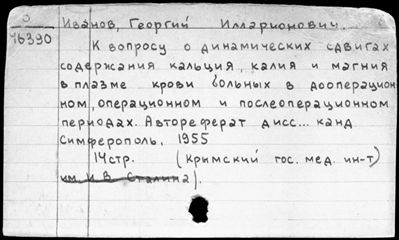 З
46390
Иванов, Георгий Илларионович.
К вопросу о динамических сдвигах
содержания кальция, калия и магния
в плазме крови больных в дооперацион
ном, операционном и послеоперационном
периодах. Автореферат дисс... канд
Симферополь, 1955
14 стр. (Крымский гос. мед. ин-т)
им. И.В. Сталина).